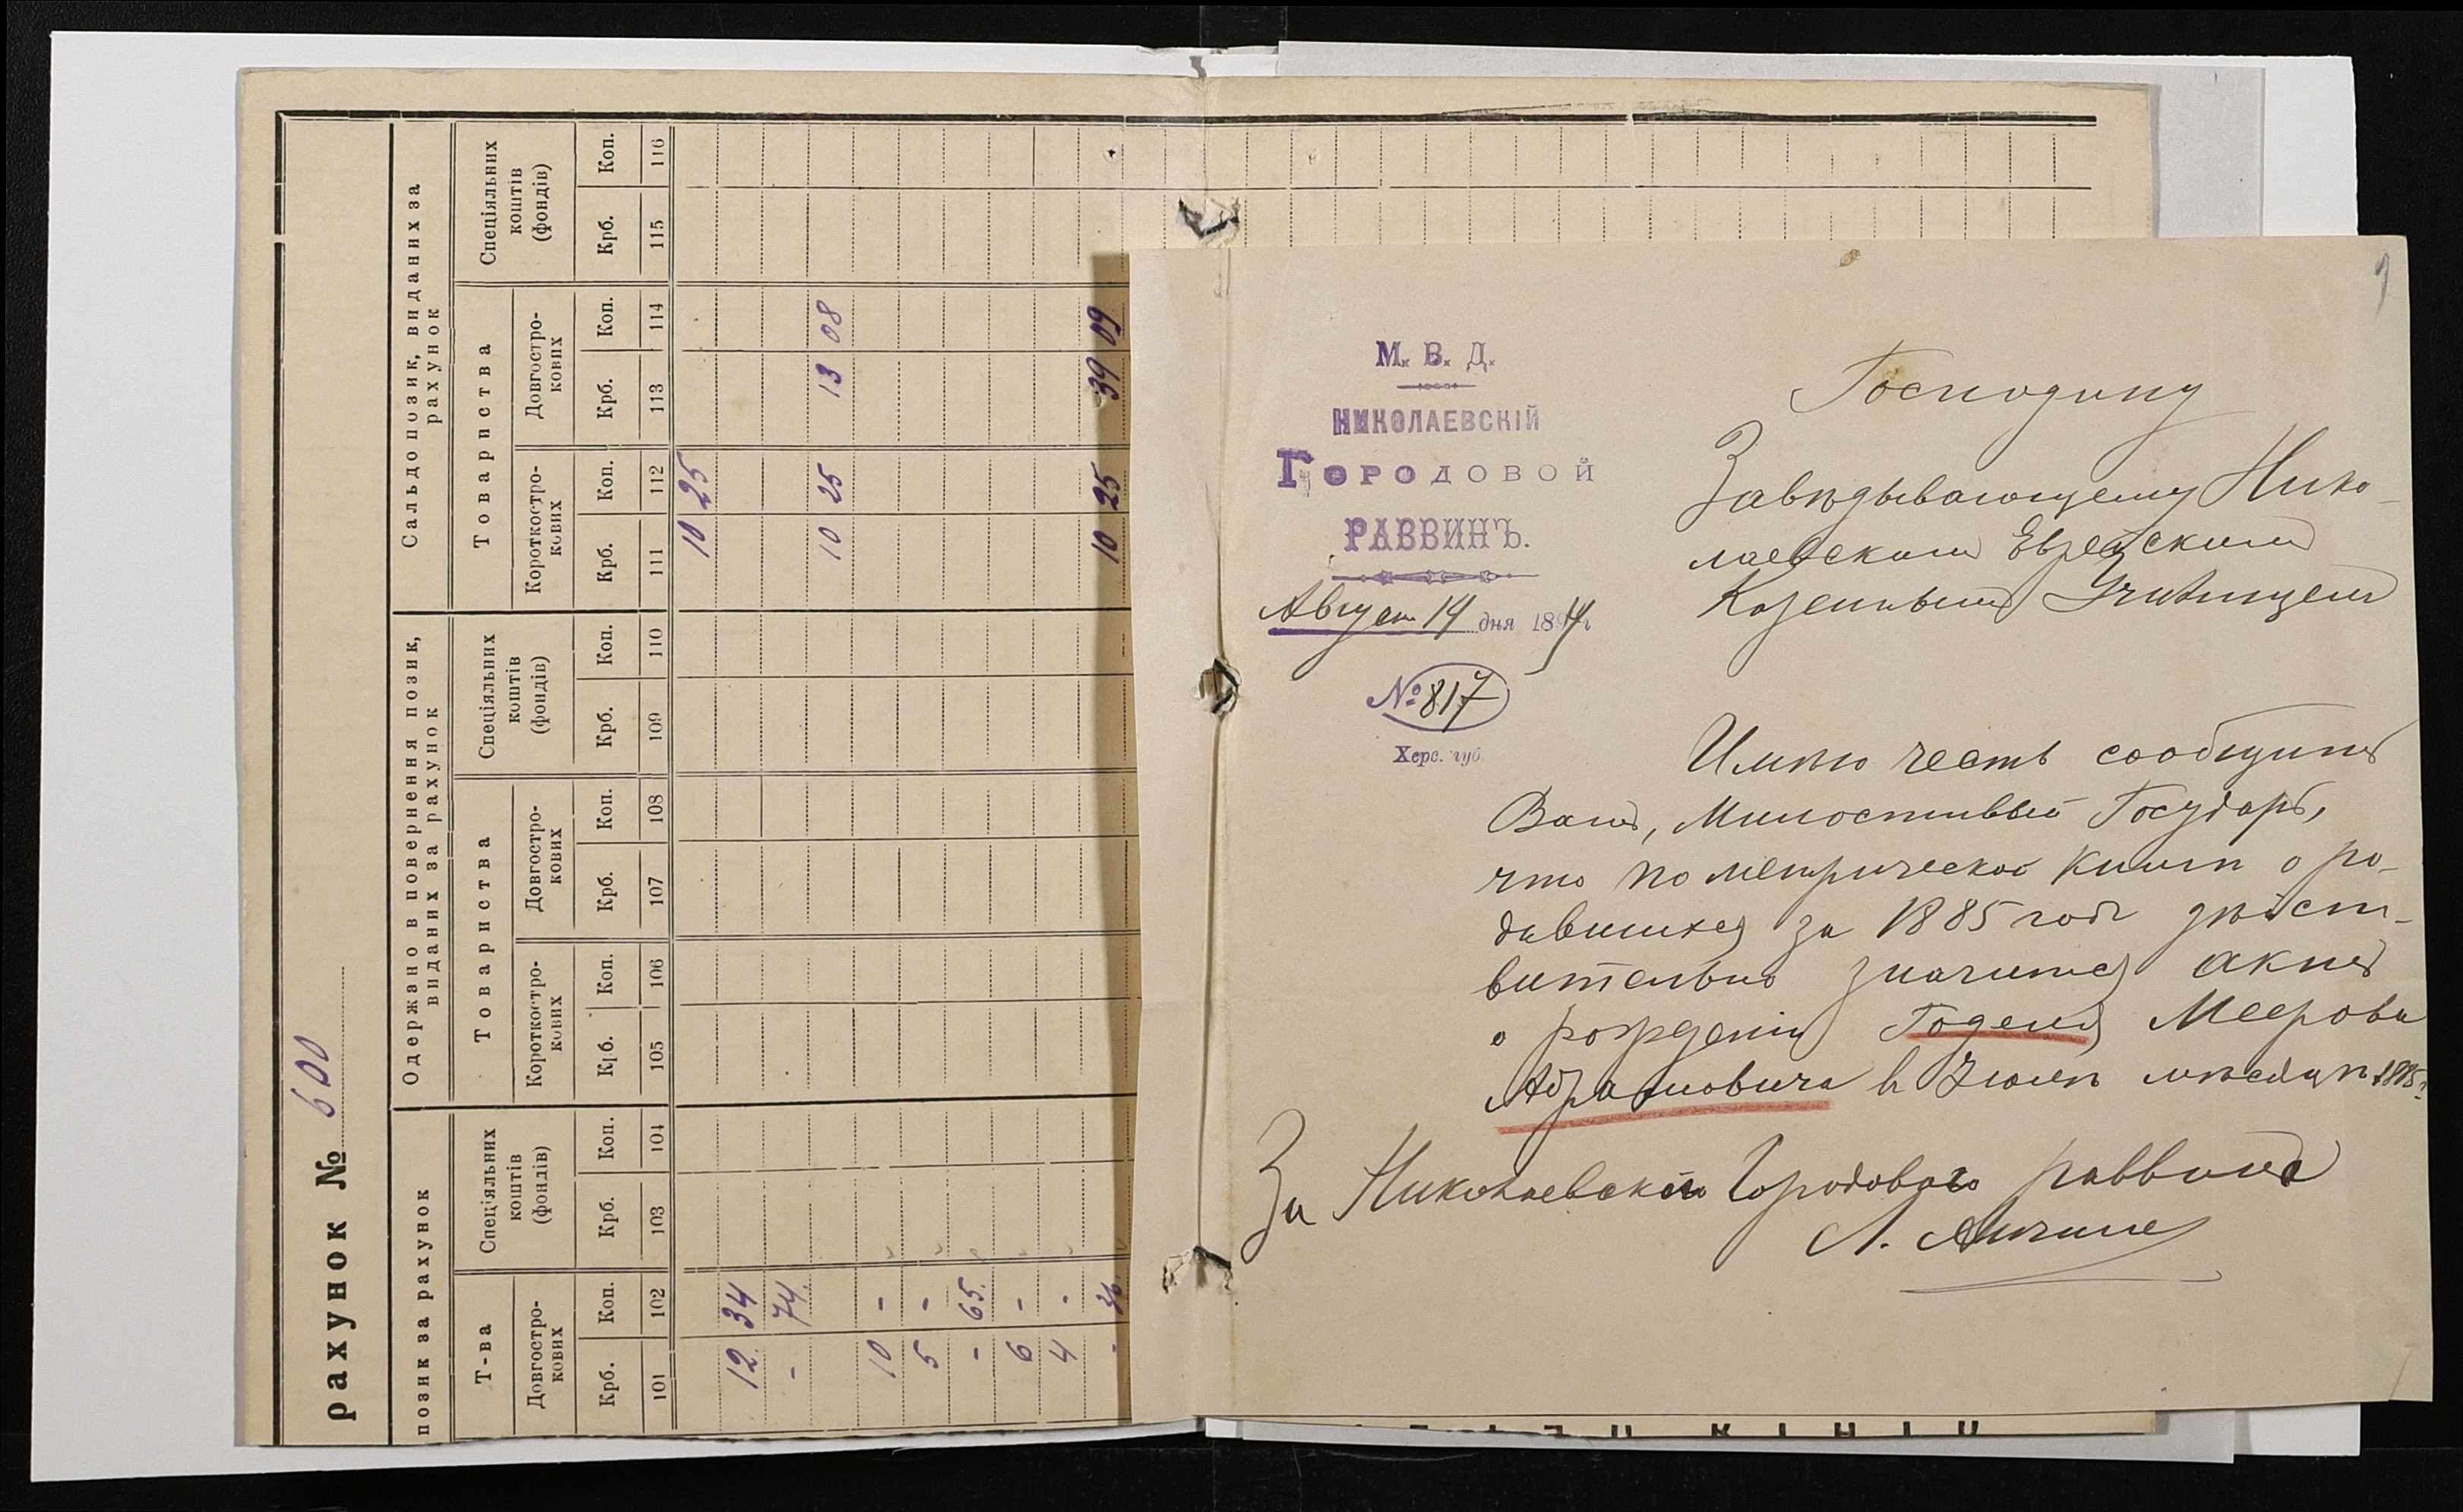 рахунок № 600
позик за рахунок
Одержано в повернення позик, виданих за рахунок
Сальдо позик, виданих за рахунок
Т-ва
Спеціяльних коштів (фондів)
Товариства
Спеціяльних коштів (фондів)
Товариства
Спеціяльних коштів (фондів)
Довгостро-кових
Короткостро-кових
Довгостро-кових
Короткостро-кових
Довгостро-кових
Крб. Коп. Крб. Коп. Крб. Коп. Крб. Коп. Крб. Коп. Крб. Коп. Крб. Коп. Крб. Коп.
101 102 103 104 105 106 107 108 109 110 111 112 113 114 115 116
10 25
12 34
- 74
10 25 13 08
10 -
5 -
- 65
6 -
4 -
- 36 10 25 39 09
М. В. Д.
НИКОЛАЕВСКІЙ
ГОРОДОВОЙ
РАВВИНЪ.
Август 14 дня 1897 г
№ 817
Херс. губ.
Господину
Завѣдывающему Нико-
лаевскимъ Еврейскимъ
Казеннымъ Училищемъ
Имѣю честь сообщить
Вамъ, Милостивый Государь,
что по метрической книгѣ о ро-
дившихся за 1885 годъ дѣйст-
вительно значится актъ
о рожденіи Годеля Меерова
Абрамовича въ Іюлѣ мѣсяцѣ 1885 г.
За Николаевскаго Городового раввина
Л.